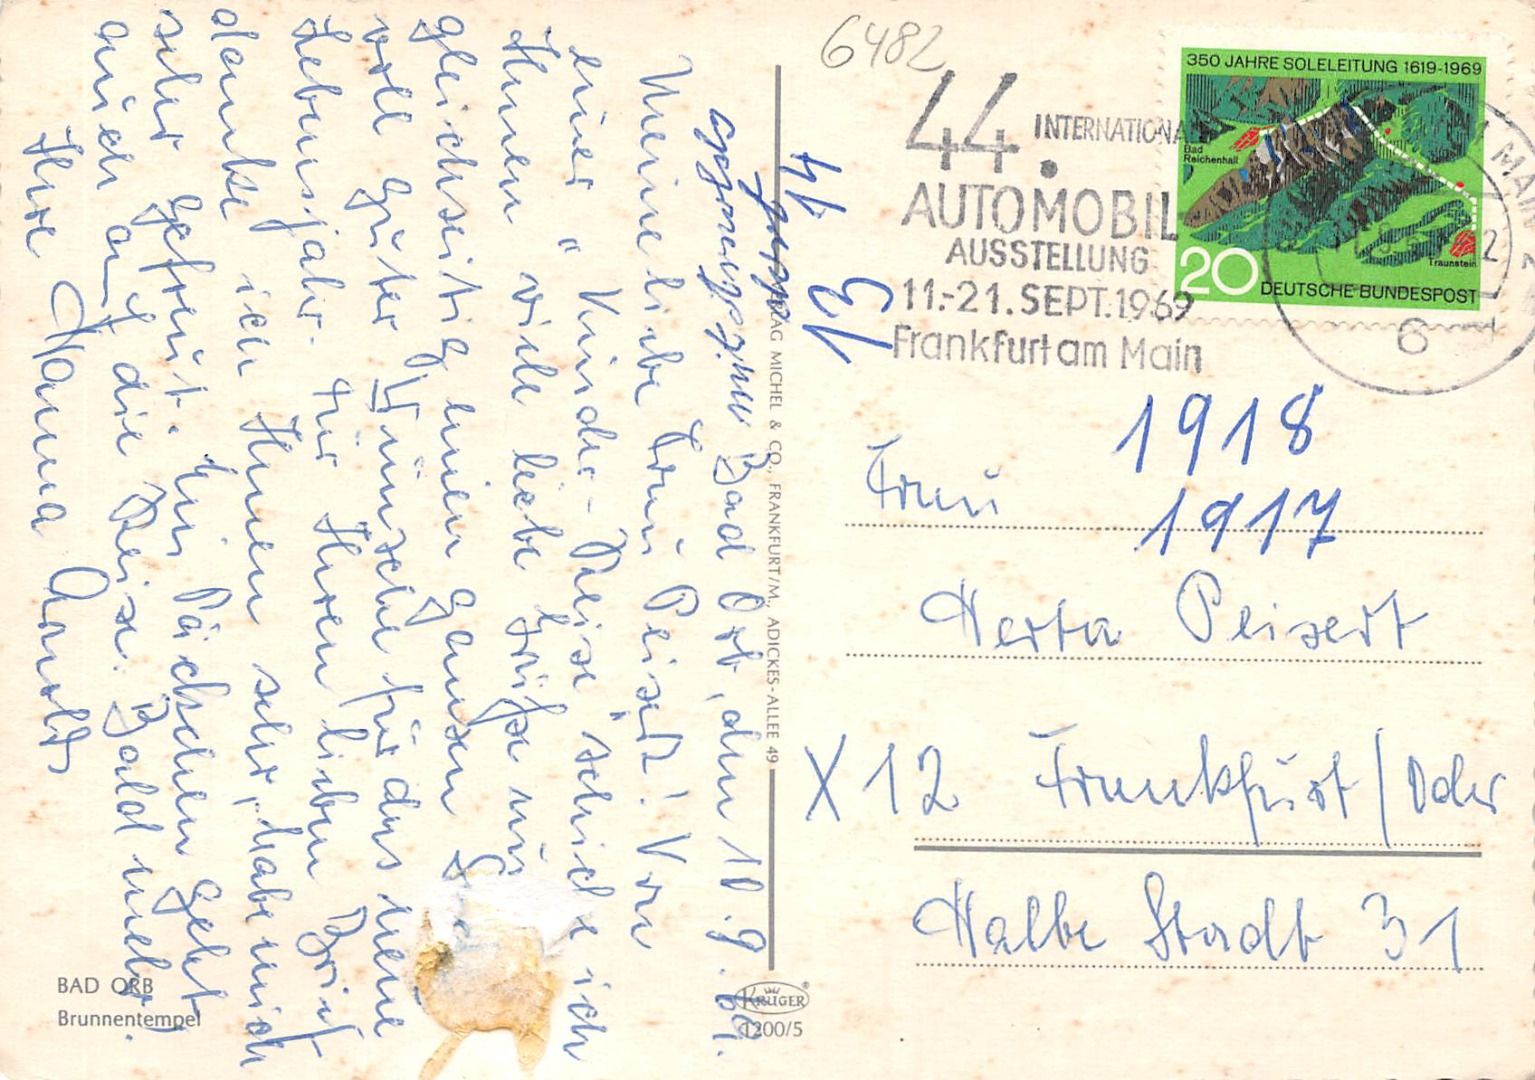 Bad Orb, den 10.9.69.
Meine liebe Frau Peisert! Von
einer „Kinder-Reise" schicke ich
Ihnen viele liebe Grüße und
gleichzeitig einen ganzen
voll guter Wünsche für das neue
Lebensjahr. Für Ihren lieben Brief
danke ich Ihnen sehr, habe mich
sehr gefreut. Ein Päckchen geht
auch auf die Reise. Bald mehr.
Ihre Hanna
BAD ORB
Brunnentempel
VERLAG MICHEL & CO., FRANKFURT/M., ADICKES-ALLEE 49
KRÜGER
1200/5
6482
44.
INTERNATIONA
AUTOMOBIL
AUSSTELLUNG
11.-21. SEPT. 1969
Frankfurt am Main
350 JAHRE SOLELEITUNG 1619-1969
Bad
Reichenhall
Traunstein
20
DEUTSCHE BUNDESPOST
MAIN 2
6
44
13
1918
1917
Frau
Herta Peisert
X 12 Frankfurt/Oder
Halbe Stadt 31